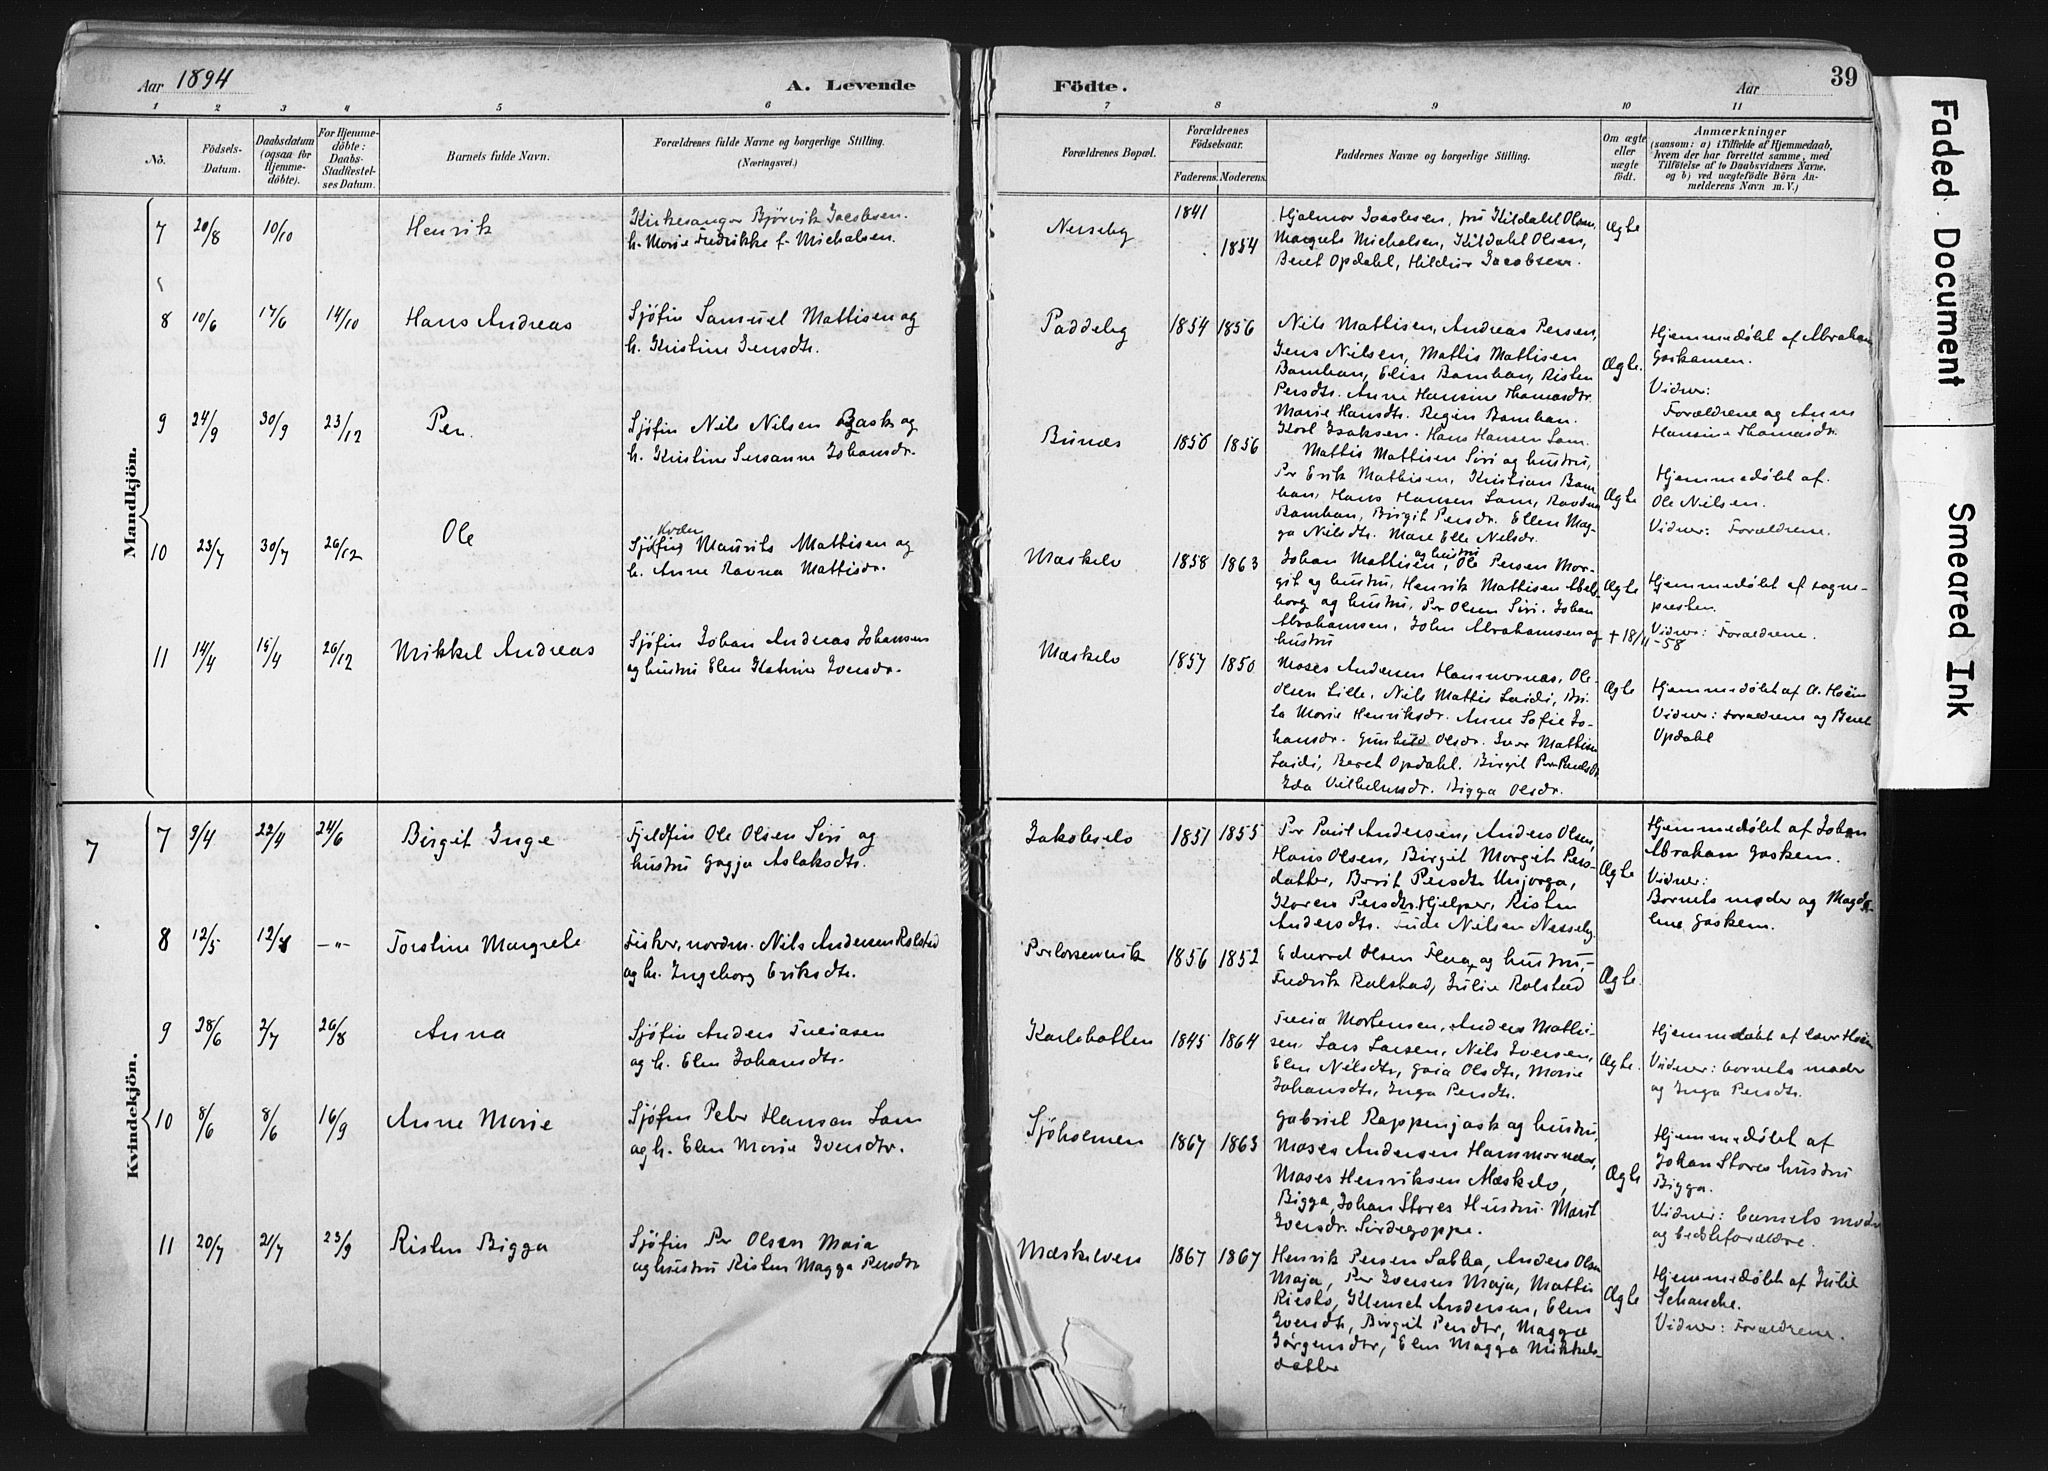 Aar 1894
A. Levende
Födte.
Aar
39
1 2 3 4 5 6 7 8 9 10 11
No.
Födsels-
Datum.
Daabsdatum
(ogsaa for
Hjemme-
döbte).
For Hjemme-
döbte:
Daabs-
Stadfæstel-
ses Datum.
Barnets fulde Navn.
Forældrenes fulde Navne og borgerlige Stilling.
(Næringsvei.)
Forældrenes Bopæl.
Forældrenes
Födselsaar.
Faderens. Moderens.
Faddernes Navne og borgerlige Stilling.
Om ægte
eller
uægte
födt.
Anmærkninger
(saasom: a) i Tilfælde af Hjemmedaab,
hvem der har forrettet samme, med
Tilföielse af to Daabsvidners Navne,
og b) ved uægtefödte Börn An-
melderens Navn m. V.)
Mandkjön.
7 20/8 10/10 Henrik
Kirkesanger Bjørvik Jacobsen.
h. Marie Fredrikke f. Michalsen.
Nesseby 1841 1854
Hjalmar Jacobsen, fru Kildahl Olsen,
Margrete Michalsen, Kildahl Olsen,
Beret Opdahl, Hildur Jacobsen.
Ægte
8 10/6 17/6 14/10 Hans Andreas
Sjöfin Samuel Mattisen og
h. Kristine Jensdtr.
Paddeby 1854 1856
Nils Mattisen, Andreas Persen,
Jens Nilsen, Mattis Mattisen
Bamban, Elise Bamban, Risten
Persdtr. Anne Hansine Thomasdtr.
Marie Hansdtr. Regin Bamban.
Ægte.
Hjemmedøbt af Abraham
Gaskamen.
Vidner:
Forældrene og Anne
Hansine Thomasdr.
9 24/9 30/9 23/12 Per.
Sjöfin Nils Nilsen Bask og
h. Kristine Susanne Johansdr.
Bunæs 1856 1856
Karl Isaksen. Hans Hansen Lam.
Mattis Mattisen Siri og hustru,
Per Erik Mathisen, Kristian Bam
ban, Hans Hansen Lam, Ravdna
Bamban, Birgit Persdr. Ellen Mag-
ga Nilsdtr. Mare Elle Nilsdr.
Ægte
Hjemmedøbt af.
Ole Nilsen.
Vidner: Forældrene.
10 23/7 30/7 26/12 Ole
Kvæn
Sjöfin Maurits Mattisen og
h. Anne Ravna Mattisdr.
Mæskelv 1858 1863
og hustru
Johan Mattisen, Ole Persen Mar-
git og hustru, Henrik Mattisen Abels-
borg og hustru, Per Olsen Siri. Johan
Abrahamsen, John Abrahamsen og
hustru
Ægte
Hjemmedøbt af sogne-
presten.
Vidner: Forældrene.
+ 18/11-58
11 14/4 15/4 26/12 Mikkel Andreas
Sjöfin Johan Andreas Johansen
og hustru Elen Katrine Iversdr.
Mæskelv 1857 1850
Moses Andersen Hammernæs, Ole
Olsen Lille, Nils Mattis Laidi, Bri-
ta Marie Henriksdr. Anne Sofie Jo-
hansdr. Gunhild Olsdr. Iver Mattisen
Laidi, Beret Opdahl. Birgit Per Paulsdr.
Ida Vilhelmsdr. Bigga Olsdr.
Ægte
Hjemmedøbt af A. Hoëm
Vidner: Forældrene og Beret
Opdahl
Kvindekjön.
7
7 9/4 22/4 24/6 Birgit Inge
Fjeldfin Ole Olsen Siri og
hustru Gagja Aslaksdtr.
Jakobselv 1851 1855
Per Paul Andersen, Anders Olsen,
Hans Olsen, Birgit Margit Pers-
datter, Berit Persdtr. Unjarga,
Karen Persdtr. Hjelper, Risten
Andersdtr. Fude Nilsen Nesseby.
Ægte
Hjemmedøbt af Johan
Abraham Gaskem.
Vidner:
Barnets moder og Magda-
lene Gaskem.
8 12/5 12/8 -"- Torstine Margrete
Fisker, nordm. Nils Andersen Rolstad
og h. Ingeborg Eriksdtr.
Perlarsenvik 1856 1852
Edvard Olsen Flena og hustru,
Fredrik Rolstad, Julie Rolstad
Ægte.
9 28/6 2/7 26/8 Anna
Sjöfin Anders Trulasen
og h. Elen Johansdtr.
Karlebotten 1845 1864
Mortensen, Anders Matti-
sen, Lars Larsen, Nils Iversen,
Elen Nilsdtr, Gaia Olsdtr, Marie
Johansdtr, Inga Persdtr.
Ægte.
Hjemmedøbt af Hoëm
Vidner: barnets moder
og Inga Persdtr.
10 8/6 8/6 16/9 Anne Marie
Sjöfin Peter Hansen Lam
og h. Elen Marie Iversdtr.
Sjöholmen 1867 1863
Gabriel Rappenjask og hustru,
Moses Andersen Hammernæs,
Moses Henriksen Mæskelv,
Bigga, Johan Stores Hustru. Marit
Iversdr. Sirdegoppe.
Ægte
Hjemmedøbt af
Johan Stores hustru
Bigga.
Vidner: barnets moder
og bedsteforældre.
11 20/7 21/7 23/9 Risten Bigga
Sjöfin Per Olsen Maja
og hustru Risten Magga Persdtr
Mæskelven 1867 1867
Henrik Persen Sabba, Anders Olsen
Maja, Per Iversen Maja, Mattis
Riesto, Klemet Andersen, Elen
Iversdtr, Birgit Persdtr, Magga
Jørgensdtr, Elen Magga Mikkels-
datter
Ægte
Hjemmedøbt af Julie
Schanche.
Vidner: Forældrene.
Faded Document
Smeared Ink